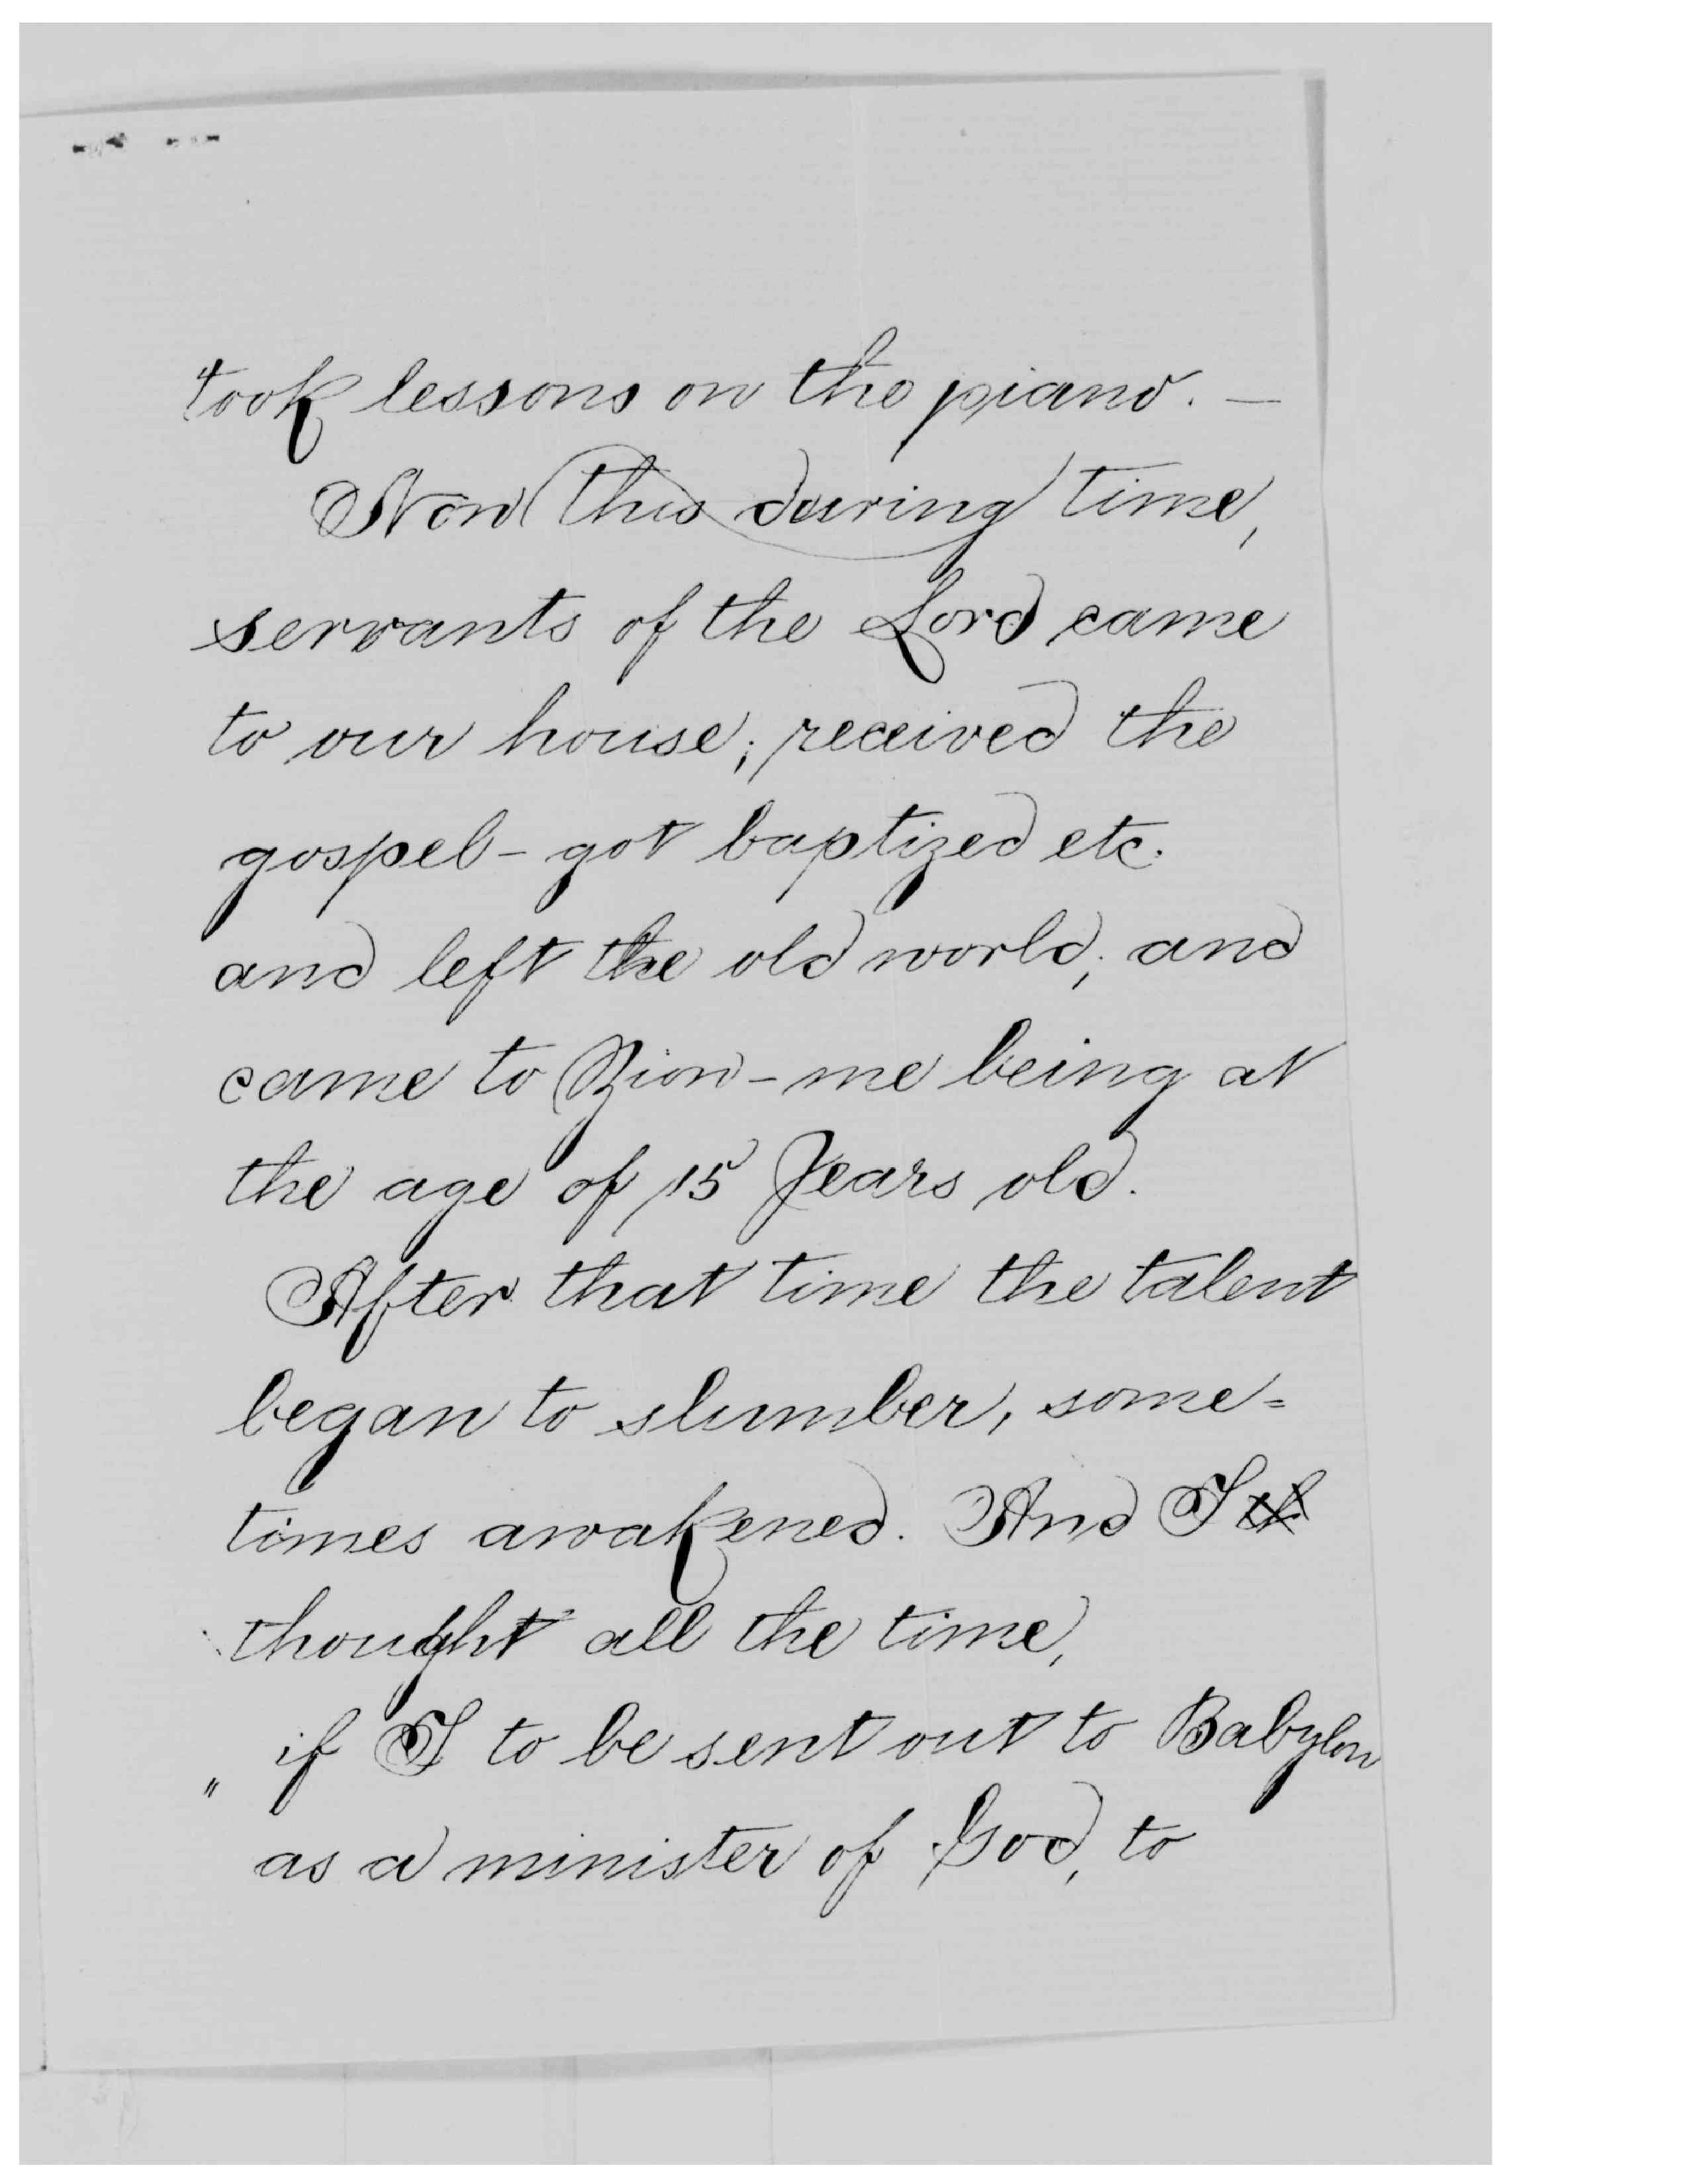 took lessons on the piano. —
Now this during time,
servants of the Lord came
to our house; received the
gospel - got baptized etc.
and left the old world; and
came to Zion - me being at
the age of 15 Years old.
After that time the talent
began to slumber, some=
times awakened. And I th
thought all the time,
if I to be sent out to Babylon
" as a minister of God, to